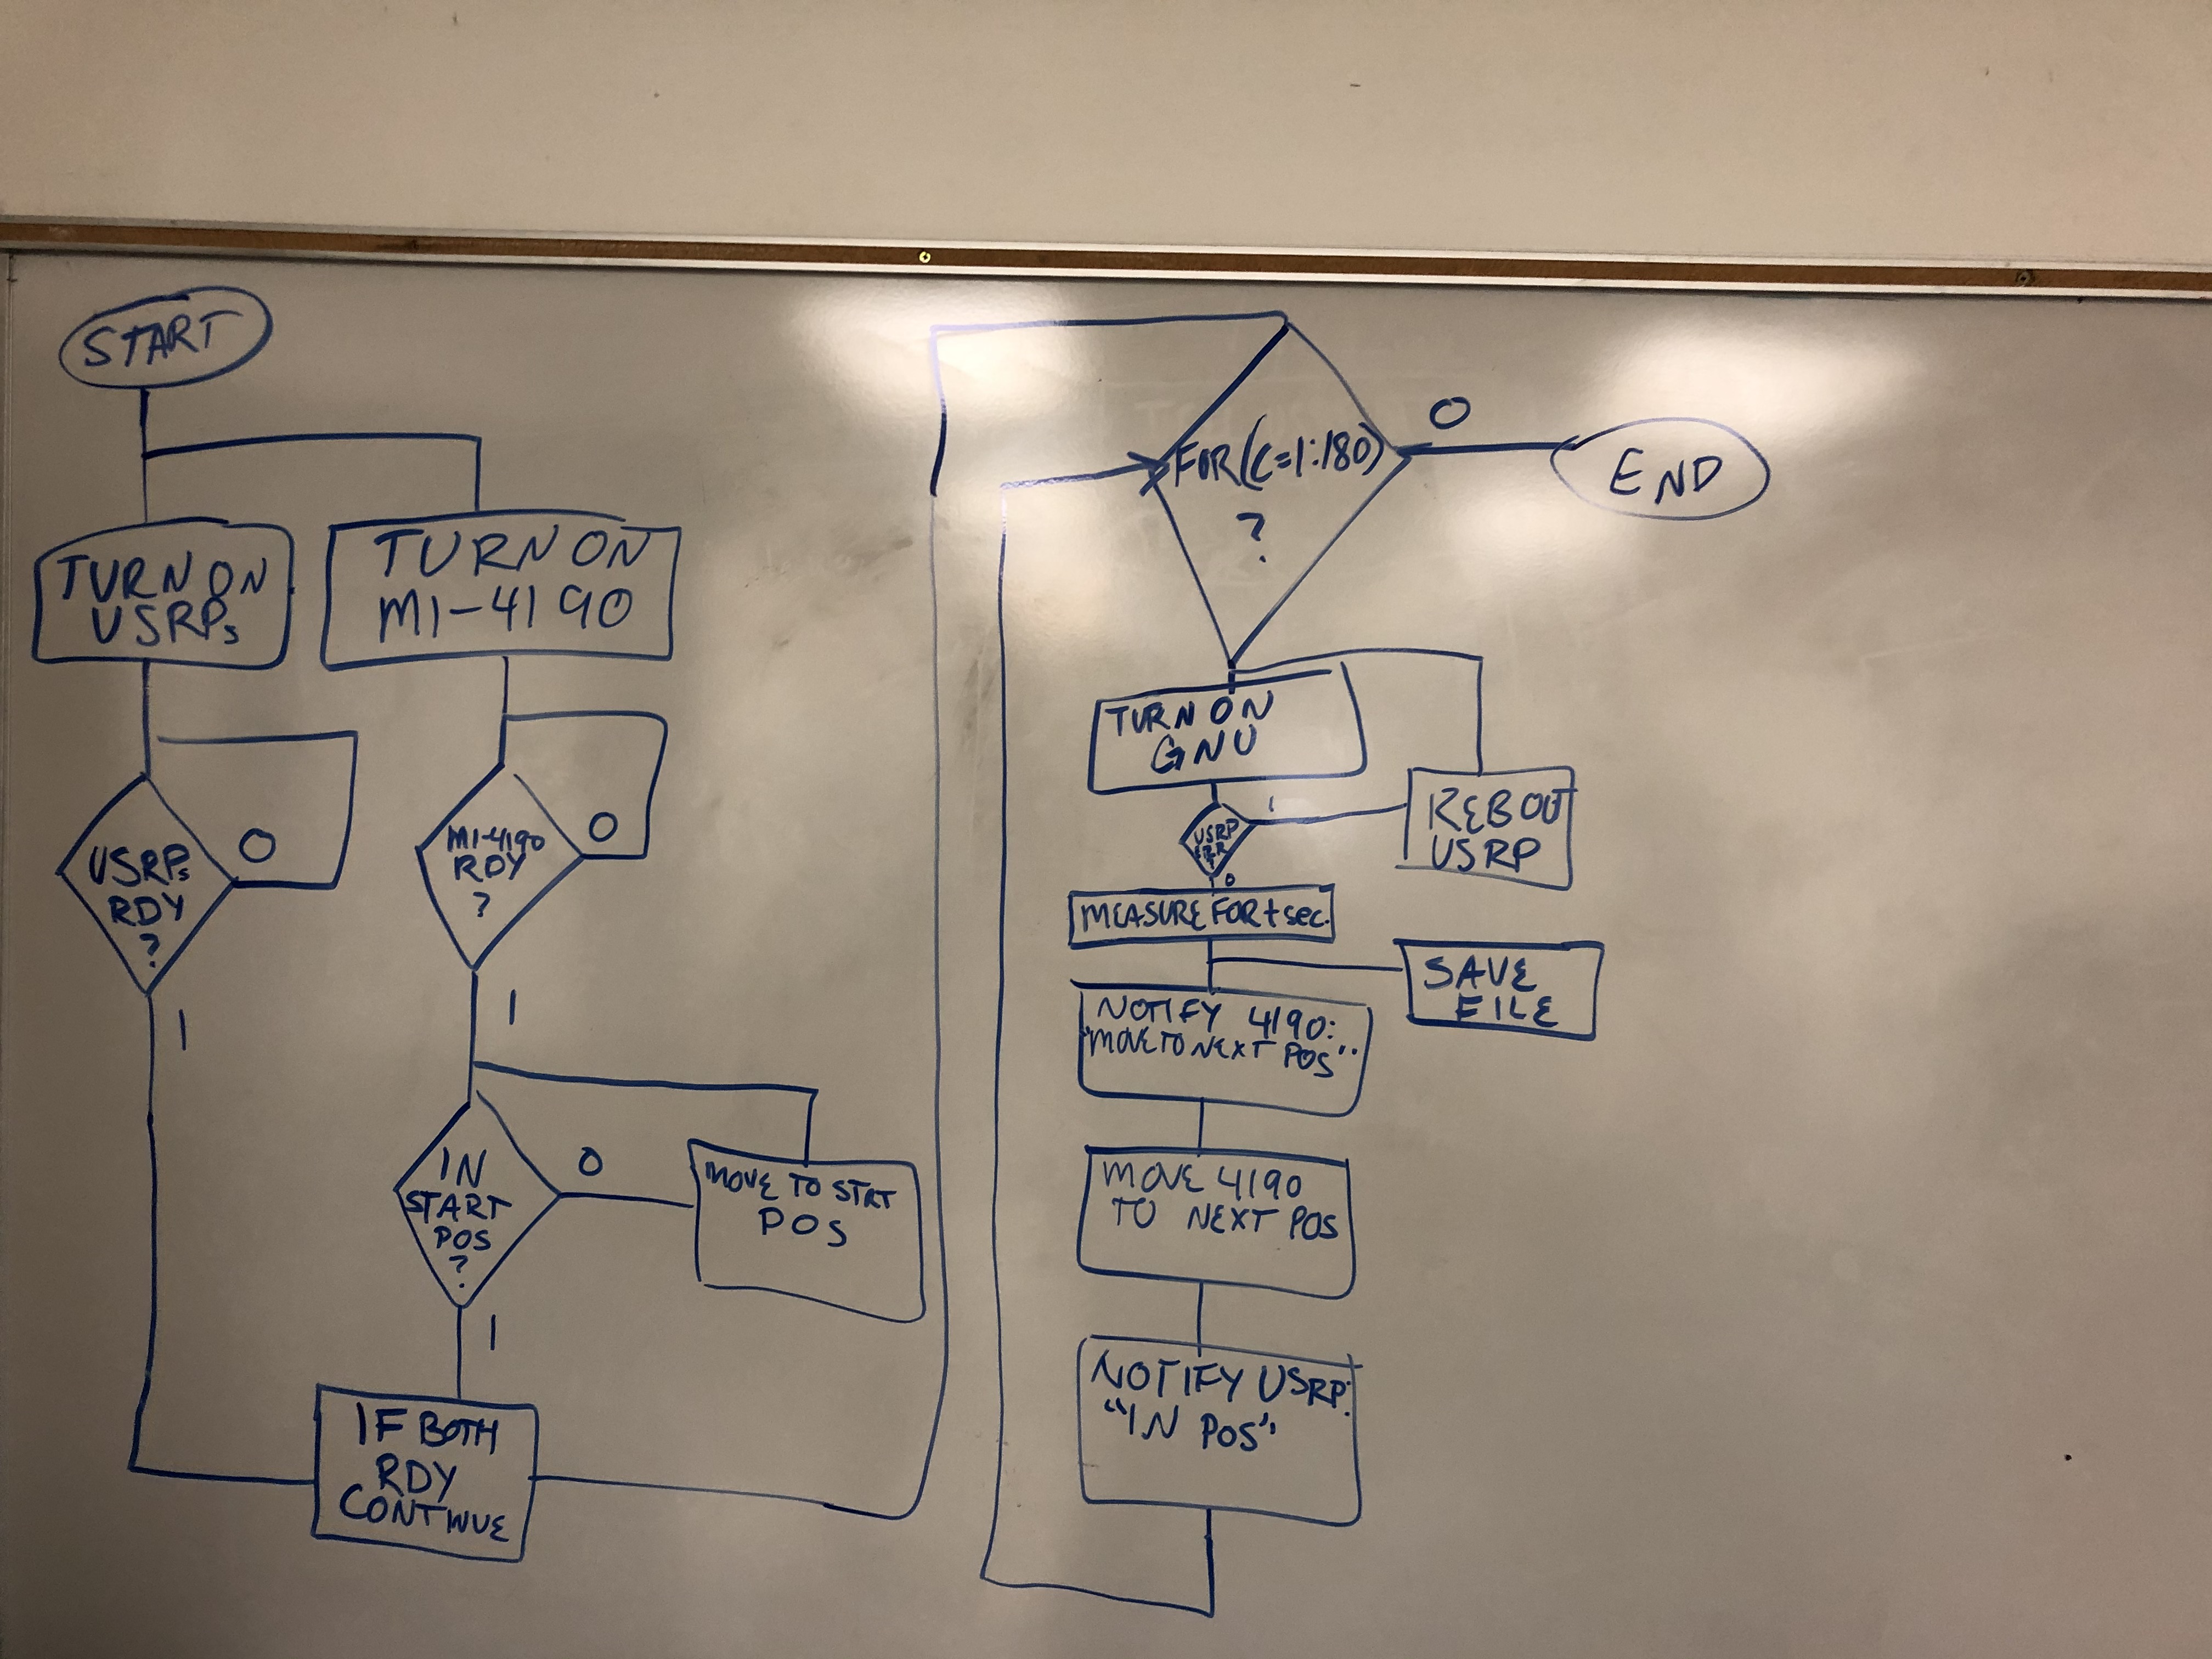 START
TURN ON
USRPs
TURN ON
MI-4190
USRPs
RDY
?
0
1
MI-4190
RDY
?
0
1
IN
START
POS
?
0
1
MOVE TO STRT
POS
IF BOTH
RDY
CONTINUE
FOR(C=1:180)
?
0
END
TURN ON
GNU
USRP
ERR
?
1
0
REBOOT
USRP
MEASURE FOR t sec.
SAVE
FILE
NOTIFY 4190:
"MOVE TO NEXT POS"
MOVE 4190
TO NEXT POS
NOTIFY USRP:
"IN POS"